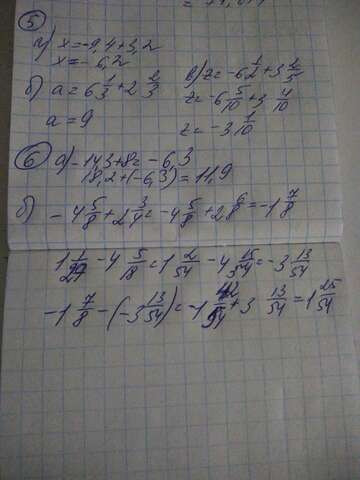 5
а) x=-9,4+3,2
x=-6,2
б) a=6 1/3+2 2/3
a=9
в) z=-6 1/2+3 2/5
z=-6 5/10+3 4/10
z=-3 1/10
6 а) -14,3+8=-6,3
18,2+(-6,3)=11,9
б) -4 5/8+2 3/4=-4 5/8+2 6/8=-1 7/8
1 1/27-4 5/18=1 2/54-4 15/54=-3 13/54
-1 7/8-(-3 13/54)=-1 42/54+3 13/54=1 25/54